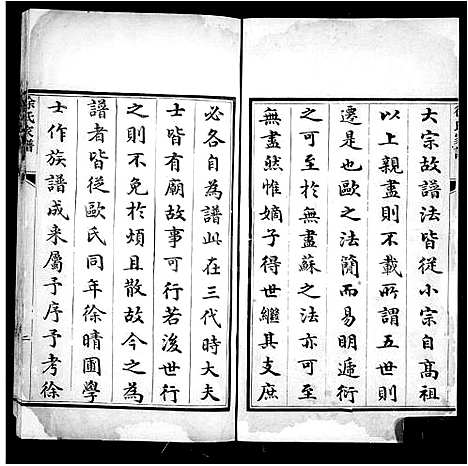 大宗故譜法皆從小宗自高祖
以上親盡則不載所謂五世則
遷是也歐之法簡而易明遞衍
之可至於無盡蘇之法亦可至
無盡然惟嫡子得世繼其支庶
必各自為譜此在三代時大夫
士皆有廟故事可行若後世行
之則不免於煩且散故今之為
譜者皆從歐氏同年徐晴圃學
士作族譜成来屬予序予考徐
徐氏家譜
二